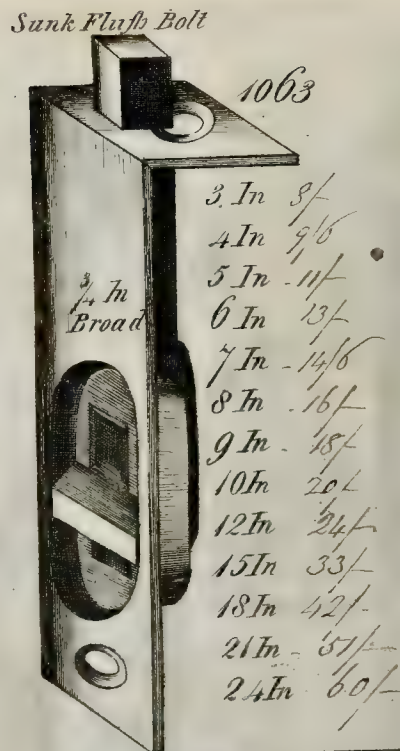 Sunk Flush Bolt
1063
3 In 8/-
4 In 9/6
5 In 11/-
6 In 13/-
7 In 14/6
8 In 16/-
9 In 18/-
10 In 20/-
12 In 24/-
15 In 33/-
18 In 42/-
21 In 51/-
24 In 60/-
3/4 In
Broad